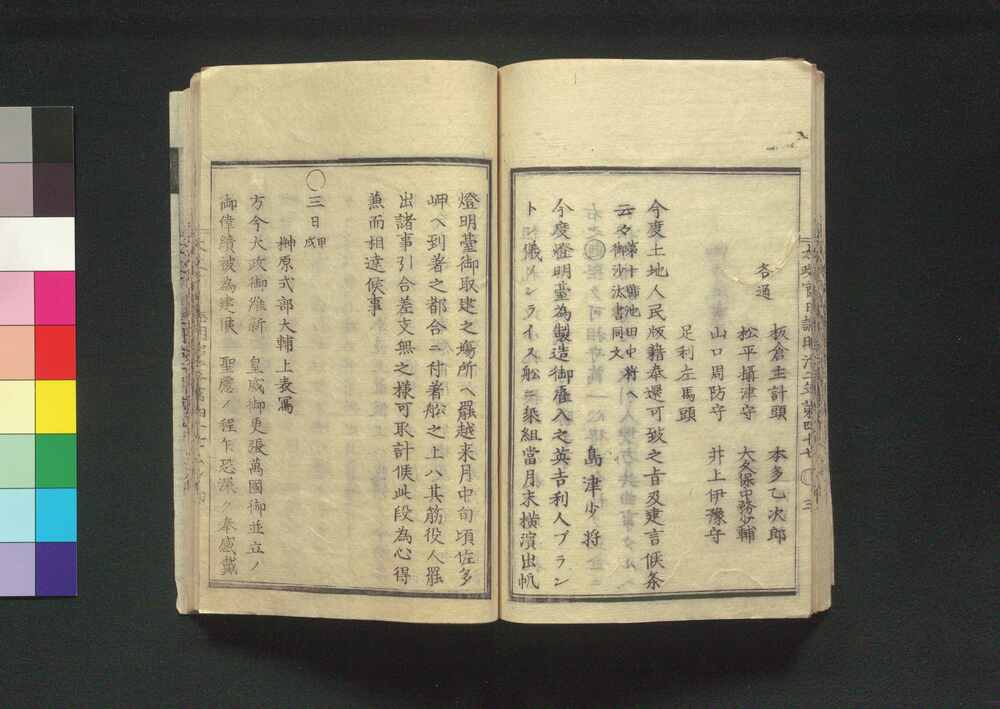 各通
板倉主計頭　本多乙次郎
松平攝津守　大久保中務少輔
山口周防守　井上伊豫守
足利左馬頭
今度土地人民版籍奉還可致之旨及建言候条
云々御沙汰書同文
第十葉池田中将ヘ
島津少将
今度燈明臺為製造御雇入之英吉利人ブラン
ト儀サンライス船ニ乗組當月末横濱出帆
燈明臺御取建之場所ヘ罷越来月中旬頃佐多
岬ヘ到著之都合ニ付著船之上ハ其筋役人罷
出諸事引合差支無之様可取計候此段為心得
兼而相達候事
○三日甲戌
榊原式部大輔上表寫
方今大政御維新　皇威御更張萬國御並立ノ
御偉績被為建候　聖慮ノ程乍恐深ク奉感戴